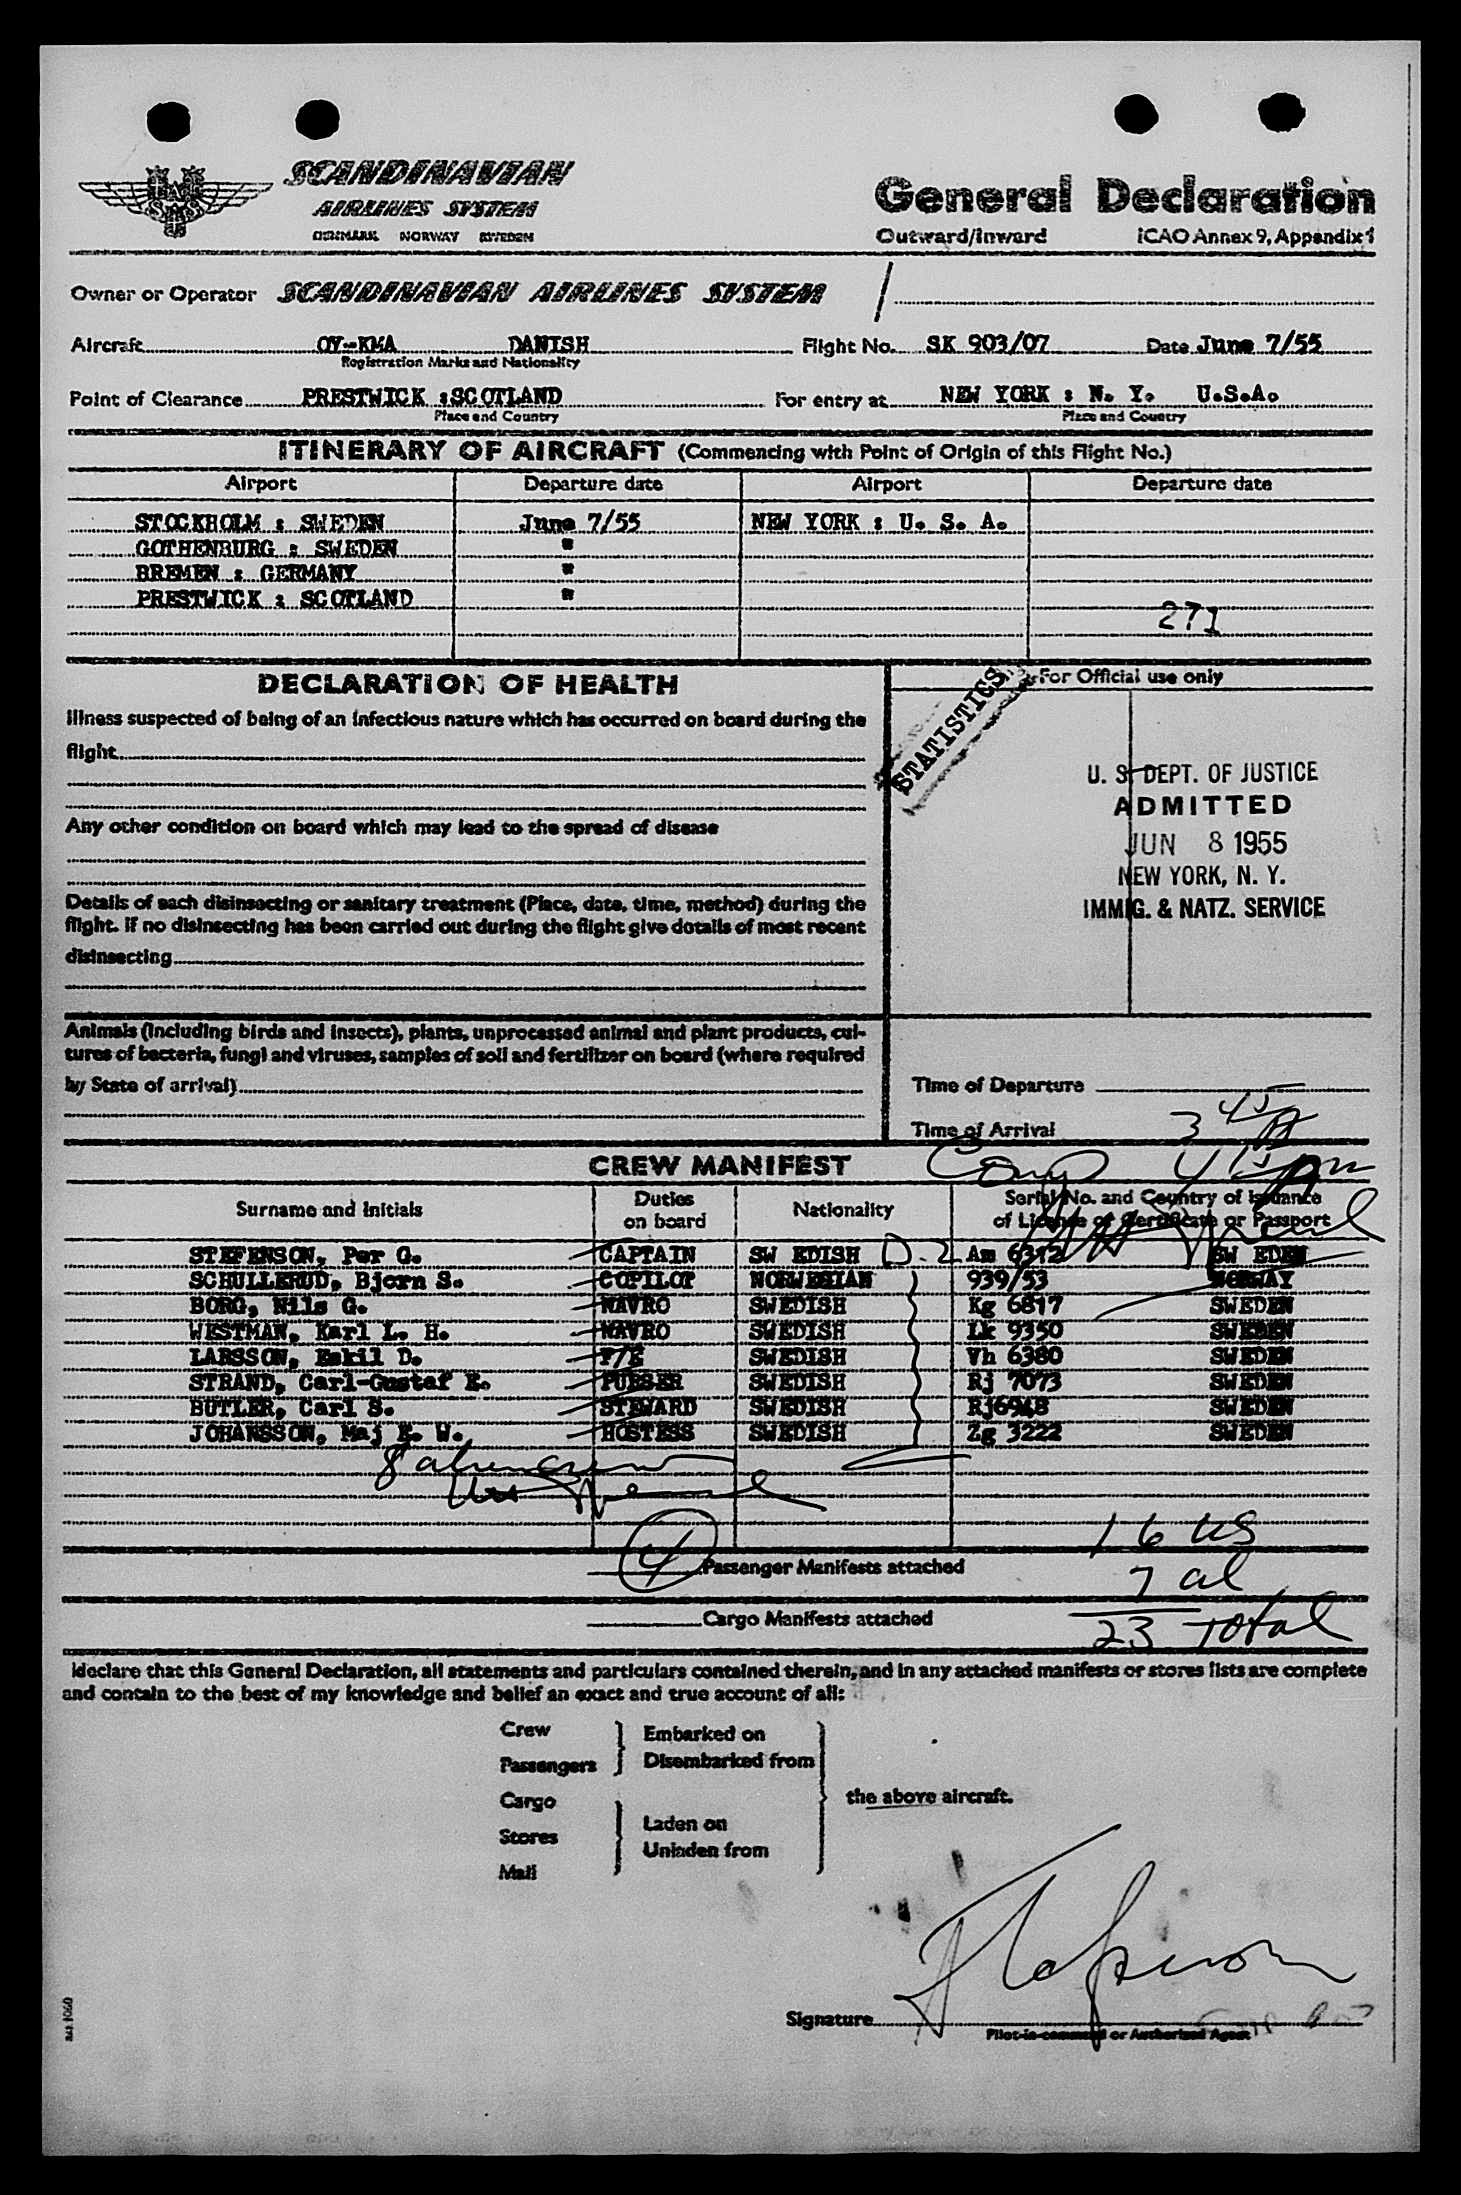 SCANDINAVIAN
AIRLINES SYSTEM
DENMARK NORWAY SWEDEN
General Declaration
Outward/Inward ICAO Annex 9, Appendix 1
Owner or Operator SCANDINAVIAN AIRLINES SYSTEM
Aircraft OY-KMA DANISH Flight No. SK 903/07 Date June 7/55
Registration Marks and Nationality
Point of Clearance PRESTWICK :SCOTLAND For entry at NEW YORK : N. Y. U.S.A.
Place and Country Place and Country
ITINERARY OF AIRCRAFT (Commencing with Point of Origin of this Flight No.)
Airport Departure date Airport Departure date
STOCKHOLM : SWEDEN June 7/55 NEW YORK : U. S. A.
GOTHENBURG : SWEDEN "
BREMEN : GERMANY "
PRESTWICK : SCOTLAND "
271
DECLARATION OF HEALTH
Illness suspected of being of an infectious nature which has occurred on board during the
flight
Any other condition on board which may lead to the spread of disease
Details of each disinsecting or sanitary treatment (Place, date, time, method) during the
flight. If no disinsecting has been carried out during the flight give details of most recent
disinsecting
Animals (including birds and insects), plants, unprocessed animal and plant products, cul-
tures of bacteria, fungi and viruses, samples of soil and fertilizer on board (where required
by State of arrival)
For Official use only
STATISTICS
U. S. DEPT. OF JUSTICE
ADMITTED
JUN 8 1955
NEW YORK, N. Y.
IMMIG. & NATZ. SERVICE
Time of Departure
Time of Arrival 3 45
Comp 4 15 pm
CREW MANIFEST
Surname and Initials Duties on board Nationality Serial No. and Country of Issuance
of License or Certificate or Passport
STEFENSON, Per G. CAPTAIN SW EDISH D-2 Am 6312 SW EDEN
SCHULLERUD, Bjorn S. COPILOT NORWEGIAN 939/53 NORWAY
BORG, Nils G. NAVRO SWEDISH Kg 6817 SWEDEN
WESTMAN, Karl L. H. NAVRO SWEDISH Lk 9350 SWEDEN
LARSSON, Eskil D. F/E SWEDISH Vh 6380 SWEDEN
STRAND, Carl-Gustaf E. PURSER SWEDISH Rj 7073 SWEDEN
BUTLER, Carl S. STEWARD SWEDISH Rj6948 SWEDEN
JOHANSSON, Maj E. W. HOSTESS SWEDISH Zg 3222 SWEDEN
8 alien crew
16 US
4 Passenger Manifests attached
7 al
Cargo Manifests attached
23 Total
I declare that this General Declaration, all statements and particulars contained therein, and in any attached manifests or stores lists are complete
and contain to the best of my knowledge and belief an exact and true account of all:
Crew
Passengers
Embarked on
Disembarked from
Cargo
Stores
Mail
Laden on
Unladen from
the above aircraft.
Signature
Pilot-in-command or Authorized Agent